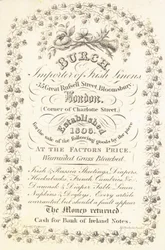 BURCH
Importer of Irish Linens
53 Great Russell Street Bloomsbury
London.
(Corner of Charlotte Street)
Established
1806.
for the sale of the following goods by the piece
AT THE FACTORS PRICE.
Warranted Grass Bleached.
Irish & Russia Sheetings, Diapers
Huckabacks, French Cambrics, Lawns
Damask & Diaper Table Linen
every article
warranted but should a fault appear
The Money returned.
Cash for Bank of Ireland Notes.